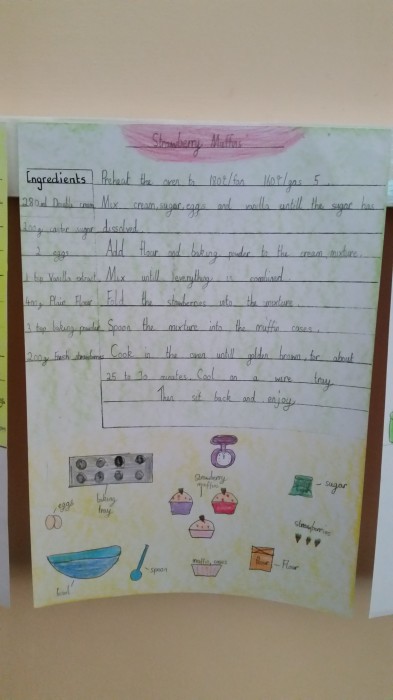 Strawberry Muffins
Ingredients
280ml Double cream
200g caster sugar
2 eggs
1 tsp Vanilla extract
400g Plain Flour
3 tsp baking powder
200g fresh strawberries
Preheat the oven to 180°c/fan 160°c/gas 5.
Mix cream, sugar, eggs and vanilla untill the sugar has
dissolved.
Add flour and baking powder to the cream mixture.
Mix untill everything is combined.
Fold the strawberries into the mixture.
Spoon the mixture into the muffin cases.
Cook in the oven untill golden brown, for about
25 to 30 minutes. Cool on a wire tray
Then sit back and enjoy
eggs
baking
tray
strawberry
muffins
sugar
strawberries
bowl
spoon
muffin cases
flour
Flour